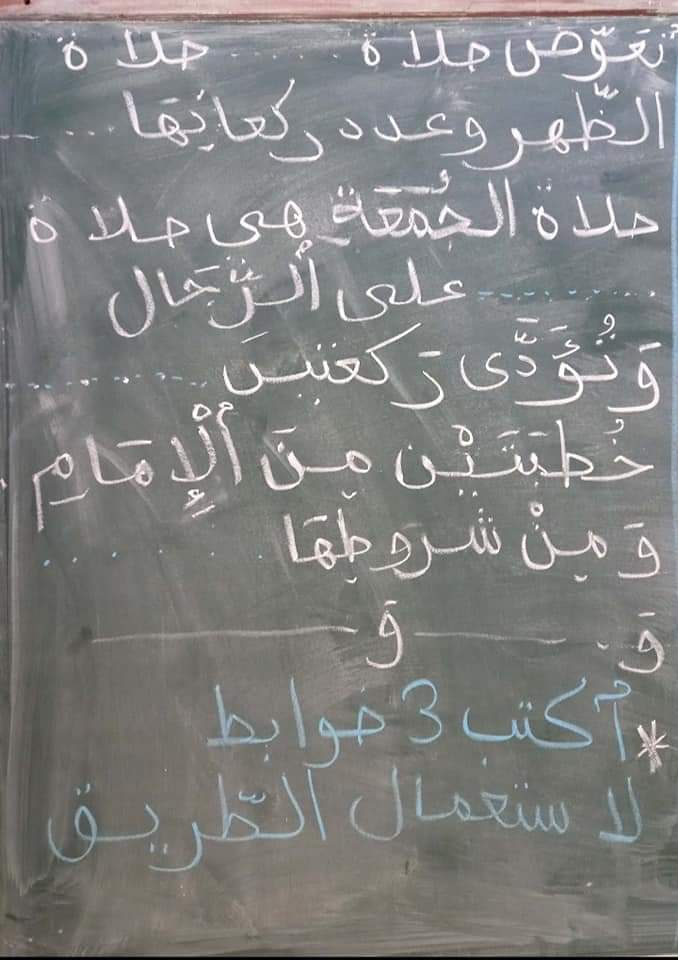 تُعَوِّض صلاة ...... صلاة
الظّهر وعدد ركعاتِهَا ......
صلاة الجُمَعَةِ هي صلاة
............ على اُلرِّجَال
وَتُؤَدَّى رَكعتينَ ............
خُطبَتَيْن مِنَ اُلْإِمَامِ
وَمِنْ شروطِهَا ............
وَ ............ وَ ............
* اُكتب 3 ضوابط
لاستعمال الطّريق